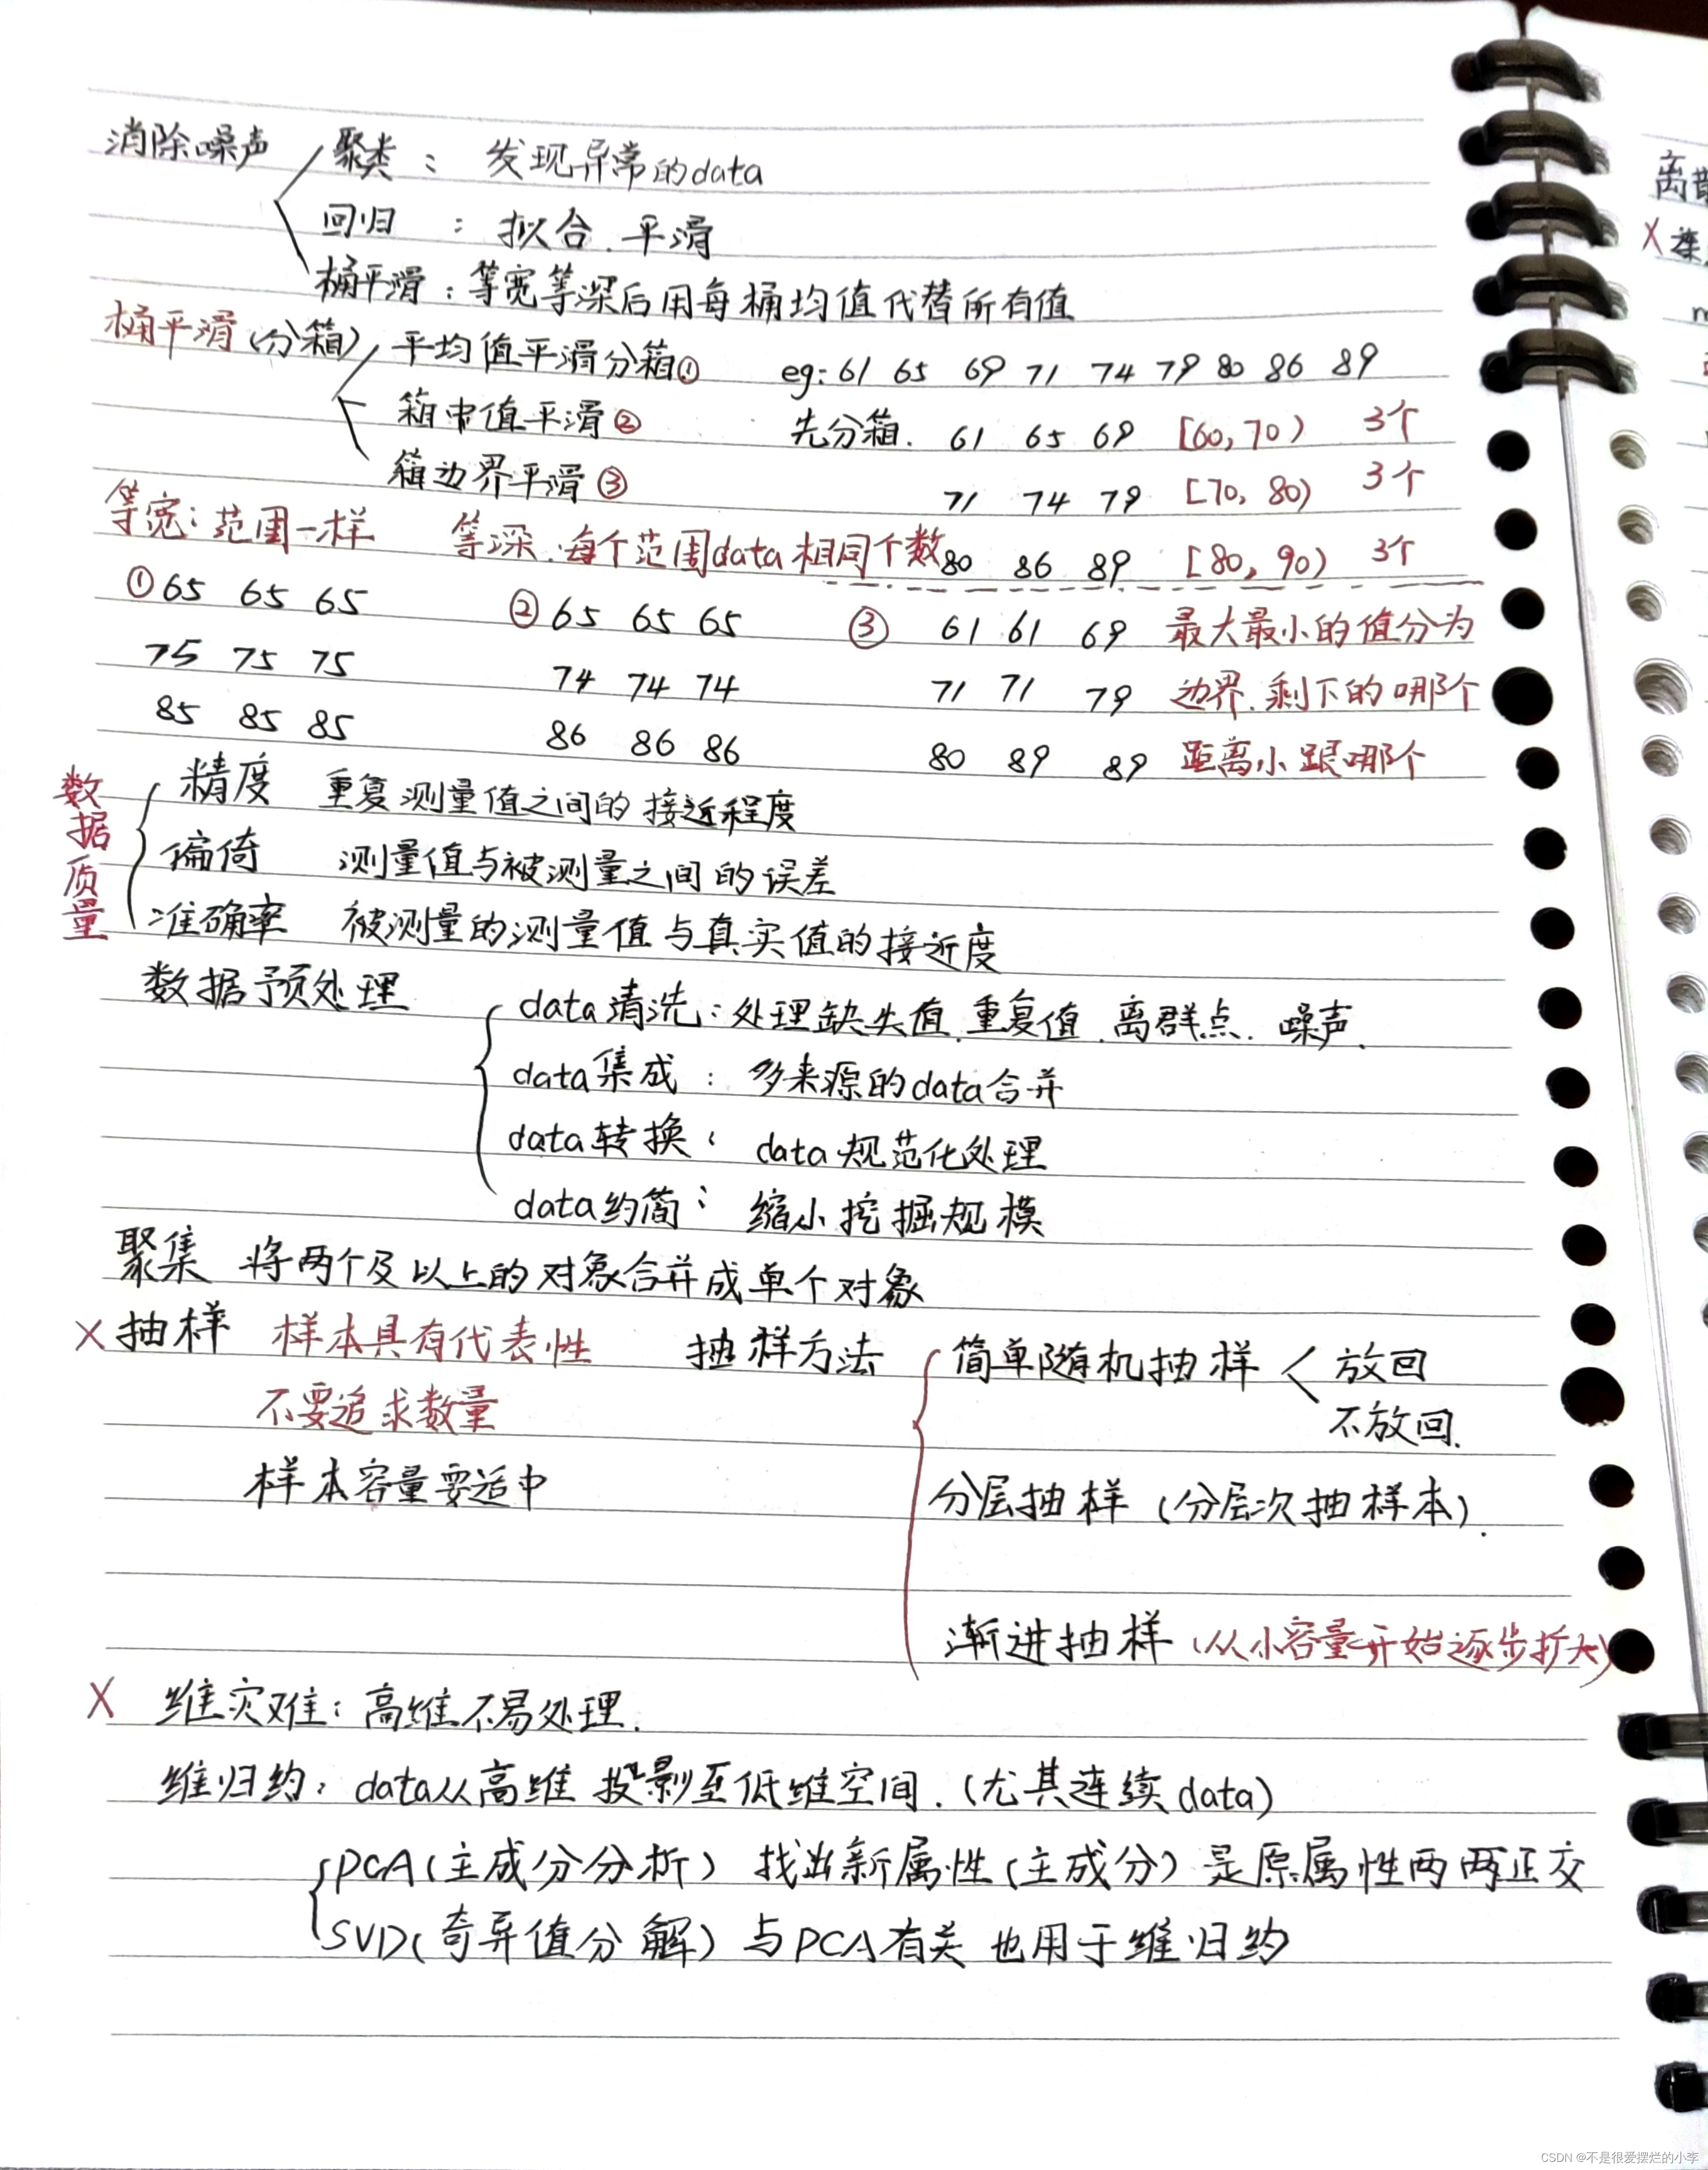 消除噪声 聚类： 发现异常的data
回归 ： 拟合.平滑
桶平滑：等宽等深后用每桶均值代替所有值
桶平滑（分箱） 平均值平滑分箱① eg: 61 65 69 71 74 79 80 86 89
箱中值平滑② 先分箱. 61 65 69 [60,70) 3个
箱边界平滑③ 71 74 79 [70,80) 3个
等宽：范围一样 等深.每个范围data相同个数 80 86 89 [80,90) 3个
①65 65 65 ②65 65 65 ③ 61 61 69 最大最小的值分为
75 75 75 74 74 74 71 71 79 边界.剩下的哪个
85 85 85 86 86 86 80 89 89 距离小跟哪个
数据质量 精度 重复测量值之间的接近程度
偏倚 测量值与被测量之间的误差
准确率 被测量的测量值与真实值的接近度
数据预处理 data清洗：处理缺失值.重复值.离群点.噪声.
data集成：多来源的data合并
data转换：data规范化处理
data约简：缩小挖掘规模
聚集 将两个及以上的对象合并成单个对象
X抽样 样本具有代表性 抽样方法 简单随机抽样 < 放回
不要追求数量 不放回.
样本容量要适中 分层抽样（分层次抽样本）.
渐进抽样（从小容量开始逐步扩大）
X 维灾难：高维不易处理.
维归约：data从高维投影至低维空间.（尤其连续data）
PCA（主成分分析） 找出新属性（主成分）是原属性两两正交
SVD（奇异值分解）与PCA有关 也用于维归约
离散
X 连
CSDN @不是很爱摆烂的小李